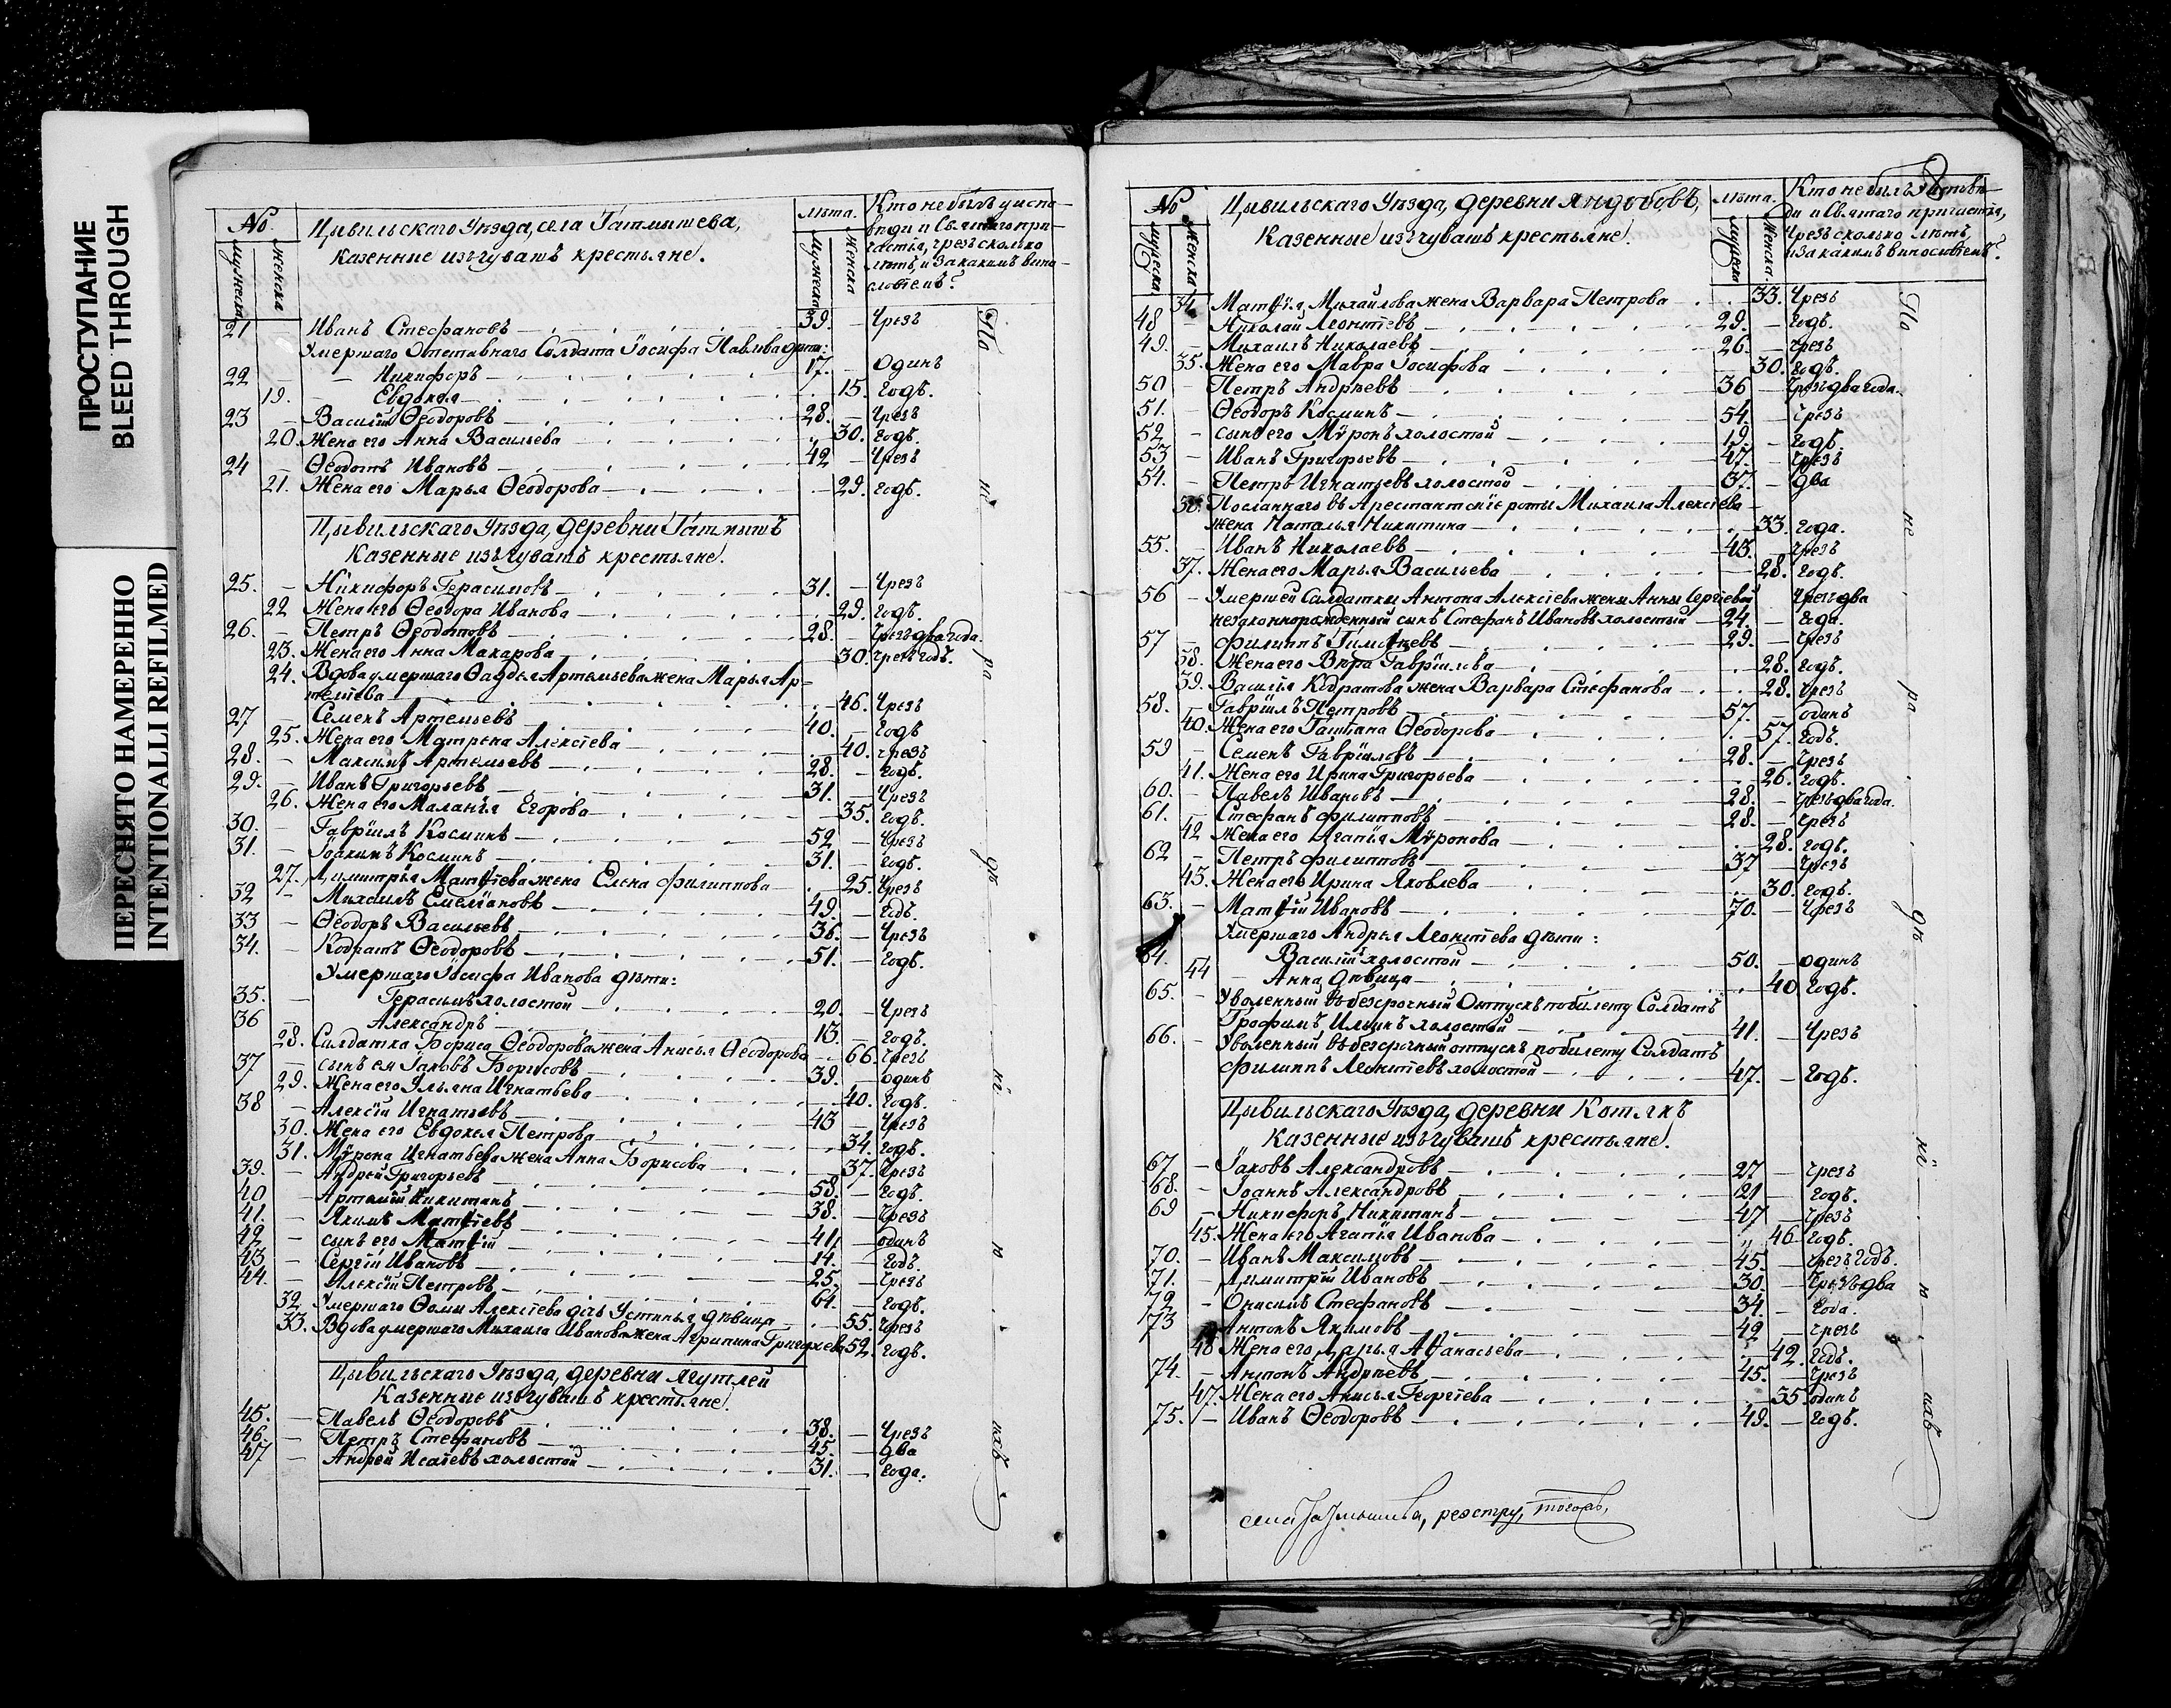 ПРОСТУПАНИЕ
BLEED THROUGH
ПЕРЕСНЯТО НАМЕРЕННО
INTENTIONALLI REFILMED
№ Цывильскаго Уѣзда, села Татмышева, Лѣта. Кто не былъ у испо-
Казенные изъ чувашъ крестьяне. вѣди и Святаго при-
частія, чрезъ сколько
лѣтъ, и за какимъ вино-
словіемъ?
Мужеска Женска Мужеска Женска
21 — Иванъ Стефановъ 39. — Чрезъ
Умершаго Отставнаго Солдата Іосифа Павлова дѣти:
22 — Никифоръ 17. — Одинъ
19. — Евдокія 15. годъ.
23 — Василій Ѳеодоровъ 28. — Чрезъ
20. Жена его Анна Васильева 30. годъ.
24 — Ѳеодотъ Ивановъ 42 — Чрезъ
21. Жена его Марья Ѳеодорова 29. годъ.
Цывильскаго Уѣзда, деревни Татмышъ
Казенные изъ чувашъ крестьяне.
25. — Никифоръ Герасимовъ 31. — Чрезъ
22 Жена его Ѳеодора Иванова 29. годъ.
26. Петръ Ѳеодотовъ 28. — Чрезъ два года.
23. Жена его Анна Макарова 30. Чрезъ годъ.
24. Вдова умершаго Ѳаддея Артемьева жена Марья Ар-
темьева 46. Чрезъ
27 — Семенъ Артемьевъ 40. — годъ
25. Жена его Матрена Алексѣева 40. чрезъ
28. — Максимъ Артемьевъ 28. — годъ.
29. — Иванъ Григорьевъ 31. — Чрезъ
26. Жена его Маланья Егорова 35. годъ.
30. — Гавріилъ Косминъ 52 — Чрезъ
31. — Іоакимъ Косминъ 31. — годъ.
27. Димитрія Матѳіева жена Елена Филиппова 25. Чрезъ
32 — Михаилъ Емеліановъ 49. — годъ.
33 — Ѳеодоръ Васильевъ 36. — Чрезъ
34. — Кодратъ Ѳеодоровъ 51. — годъ.
Умершаго Іосифа Иванова дѣти:
35. — Герасимъ холостой 20. — Чрезъ
36 — Александръ 13. — годъ.
28. Салдатка Бориса Ѳеодорова жена Анисья Ѳеодорова 66. Чрезъ
37 — сынъ ея Іаковъ Борисовъ 39. — одинъ
29. Жена его Ульяна Игнатьева 40. годъ.
38 — Алексій Игнатьевъ 43 — Чрезъ
30. Жена его Евдокея Петрова 34. годъ.
31. Мѵрона Игнатьева жена Анна Борисова 37. Чрезъ
39. — Андрей Григорьевъ 58. — годъ.
40 — Артемій Никитинъ 38. — Чрезъ
41. — Якимъ Матѳіевъ 41 — одинъ
42 — сынъ его Матѳій 14. — годъ.
43 — Сергій Ивановъ 25. — Чрезъ
44. — Алексій Петровъ 64. годъ.
32. Умершаго Ѳомы Алексѣева дочь Устинья дѣвица 55. Чрезъ
33. Вдова умершаго Михаила Иванова жена Агрипина Григорьева 52. годъ.
Цывильскаго Уѣзда, деревни Ягутлей
Казенные изъ чувашъ крестьяне.
45. — Павелъ Ѳеодоровъ 38. — Чрезъ
46. — Петръ Стефановъ 45. — два
47 — Андрей Исаіевъ холостой 31. — года.
По не ра дѣ нї ю ихъ
№ Цывильскаго Уѣзда, деревни Яндобовъ, Лѣта. Кто не былъ у испові-
Казенные изъ чувашъ крестьяне. ди и Святаго причастія,
Чрезъ сколько лѣтъ,
и за какимъ винословіемъ?
Мужеска Женска Мужеска Женска
34. Матѳія Михайлова жена Варвара Петрова 33. Чрезъ
48 — Николай Леонтіевъ 29. — годъ.
49. — Михаилъ Николаевъ 26. — Чрезъ
35. Жена его Мавра Іосифова 30. годъ.
50 — Петръ Андреевъ 36 — Чрезъ два года.
51. — Ѳеодоръ Косминъ 54. — Чрезъ
52 — сынъ его Мѵронъ холостой 19. — годъ.
53 — Иванъ Григорьевъ 47. — Чрезъ
54. — Петръ Игнатьевъ холостой 37. — два
36. Посланнаго въ Арестантскіе роты Михаила Алексѣева
жена Наталья Никитина 33. года.
55. — Иванъ Николаевъ 43. чрезъ
37. Жена его Марья Васильева 28. годъ.
56 — Умершей Салдатки Антона Алексѣева жены Анны Сергіевой Чрезъ два
незаконнорожденный сынъ Стефанъ Ивановъ холостый 24. — года.
57 — Филиппъ Тимоѳеевъ 29. — Чрезъ
38. Жена его Вѣра Гавріилова 28. годъ.
39. Василія Кодратова жена Варвара Стефанова 28. Чрезъ
58. Гавріилъ Петровъ 57. одинъ
40. Жена его Татіана Ѳеодорова 57. годъ.
59 — Семенъ Гавріиловъ 28. — Чрезъ
41. Жена его Ирина Григорьева 26. годъ.
60. — Павелъ Ивановъ 28. — Чрезъ два года.
61. Стефанъ Филипповъ 28. — Чрезъ
42 Жена его Агапія Мѵронова 28. годъ.
62 — Петръ Филипповъ 37 Чрезъ
43. Жена его Ирина Яковлева 30. годъ.
63. — Матѳій Ивановъ 70. — Чрезъ
Умершаго Андрея Леонтіева дѣти:
64. Василій холостой 50. — одинъ
44 — Анна дѣвица 40. годъ.
65. — Уволенный въ безсрочный Отпускъ по билету Солдатъ
Трофимъ Ильинъ холостой 41. — Чрезъ
66. — Уволенный въ безсрочный отпускъ по билету Солдатъ
Филиппъ Леонтіевъ холостой 47. — годъ.
Цывильскаго Уѣзда, деревни Котякъ
Казенные изъ чувашъ крестьяне.
67. — Іаковъ Александровъ 27 — чрезъ
68. — Іоаннъ Александровъ 21 — годъ.
69 — Никифоръ Никитинъ 47 — чрезъ
45. Жена его Агапія Иванова 46 годъ.
70. — Иванъ Максимовъ 45. — чрезъ годъ.
71. — Димитрій Ивановъ 30. — Чрезъ два
72 — Онисимъ Стефановъ 34. — года.
73 Антонъ Якимовъ 42 — чрезъ
46 Жена его Дарья Аѳанасьева 42. годъ.
74. — Антонъ Андреевъ 45. — Чрезъ
47. Жена его Анисья Георгіева 35 одинъ
75. — Иванъ Ѳеодоровъ 49. — годъ.
По не ра дѣ нї ю ихъ
реэстру,